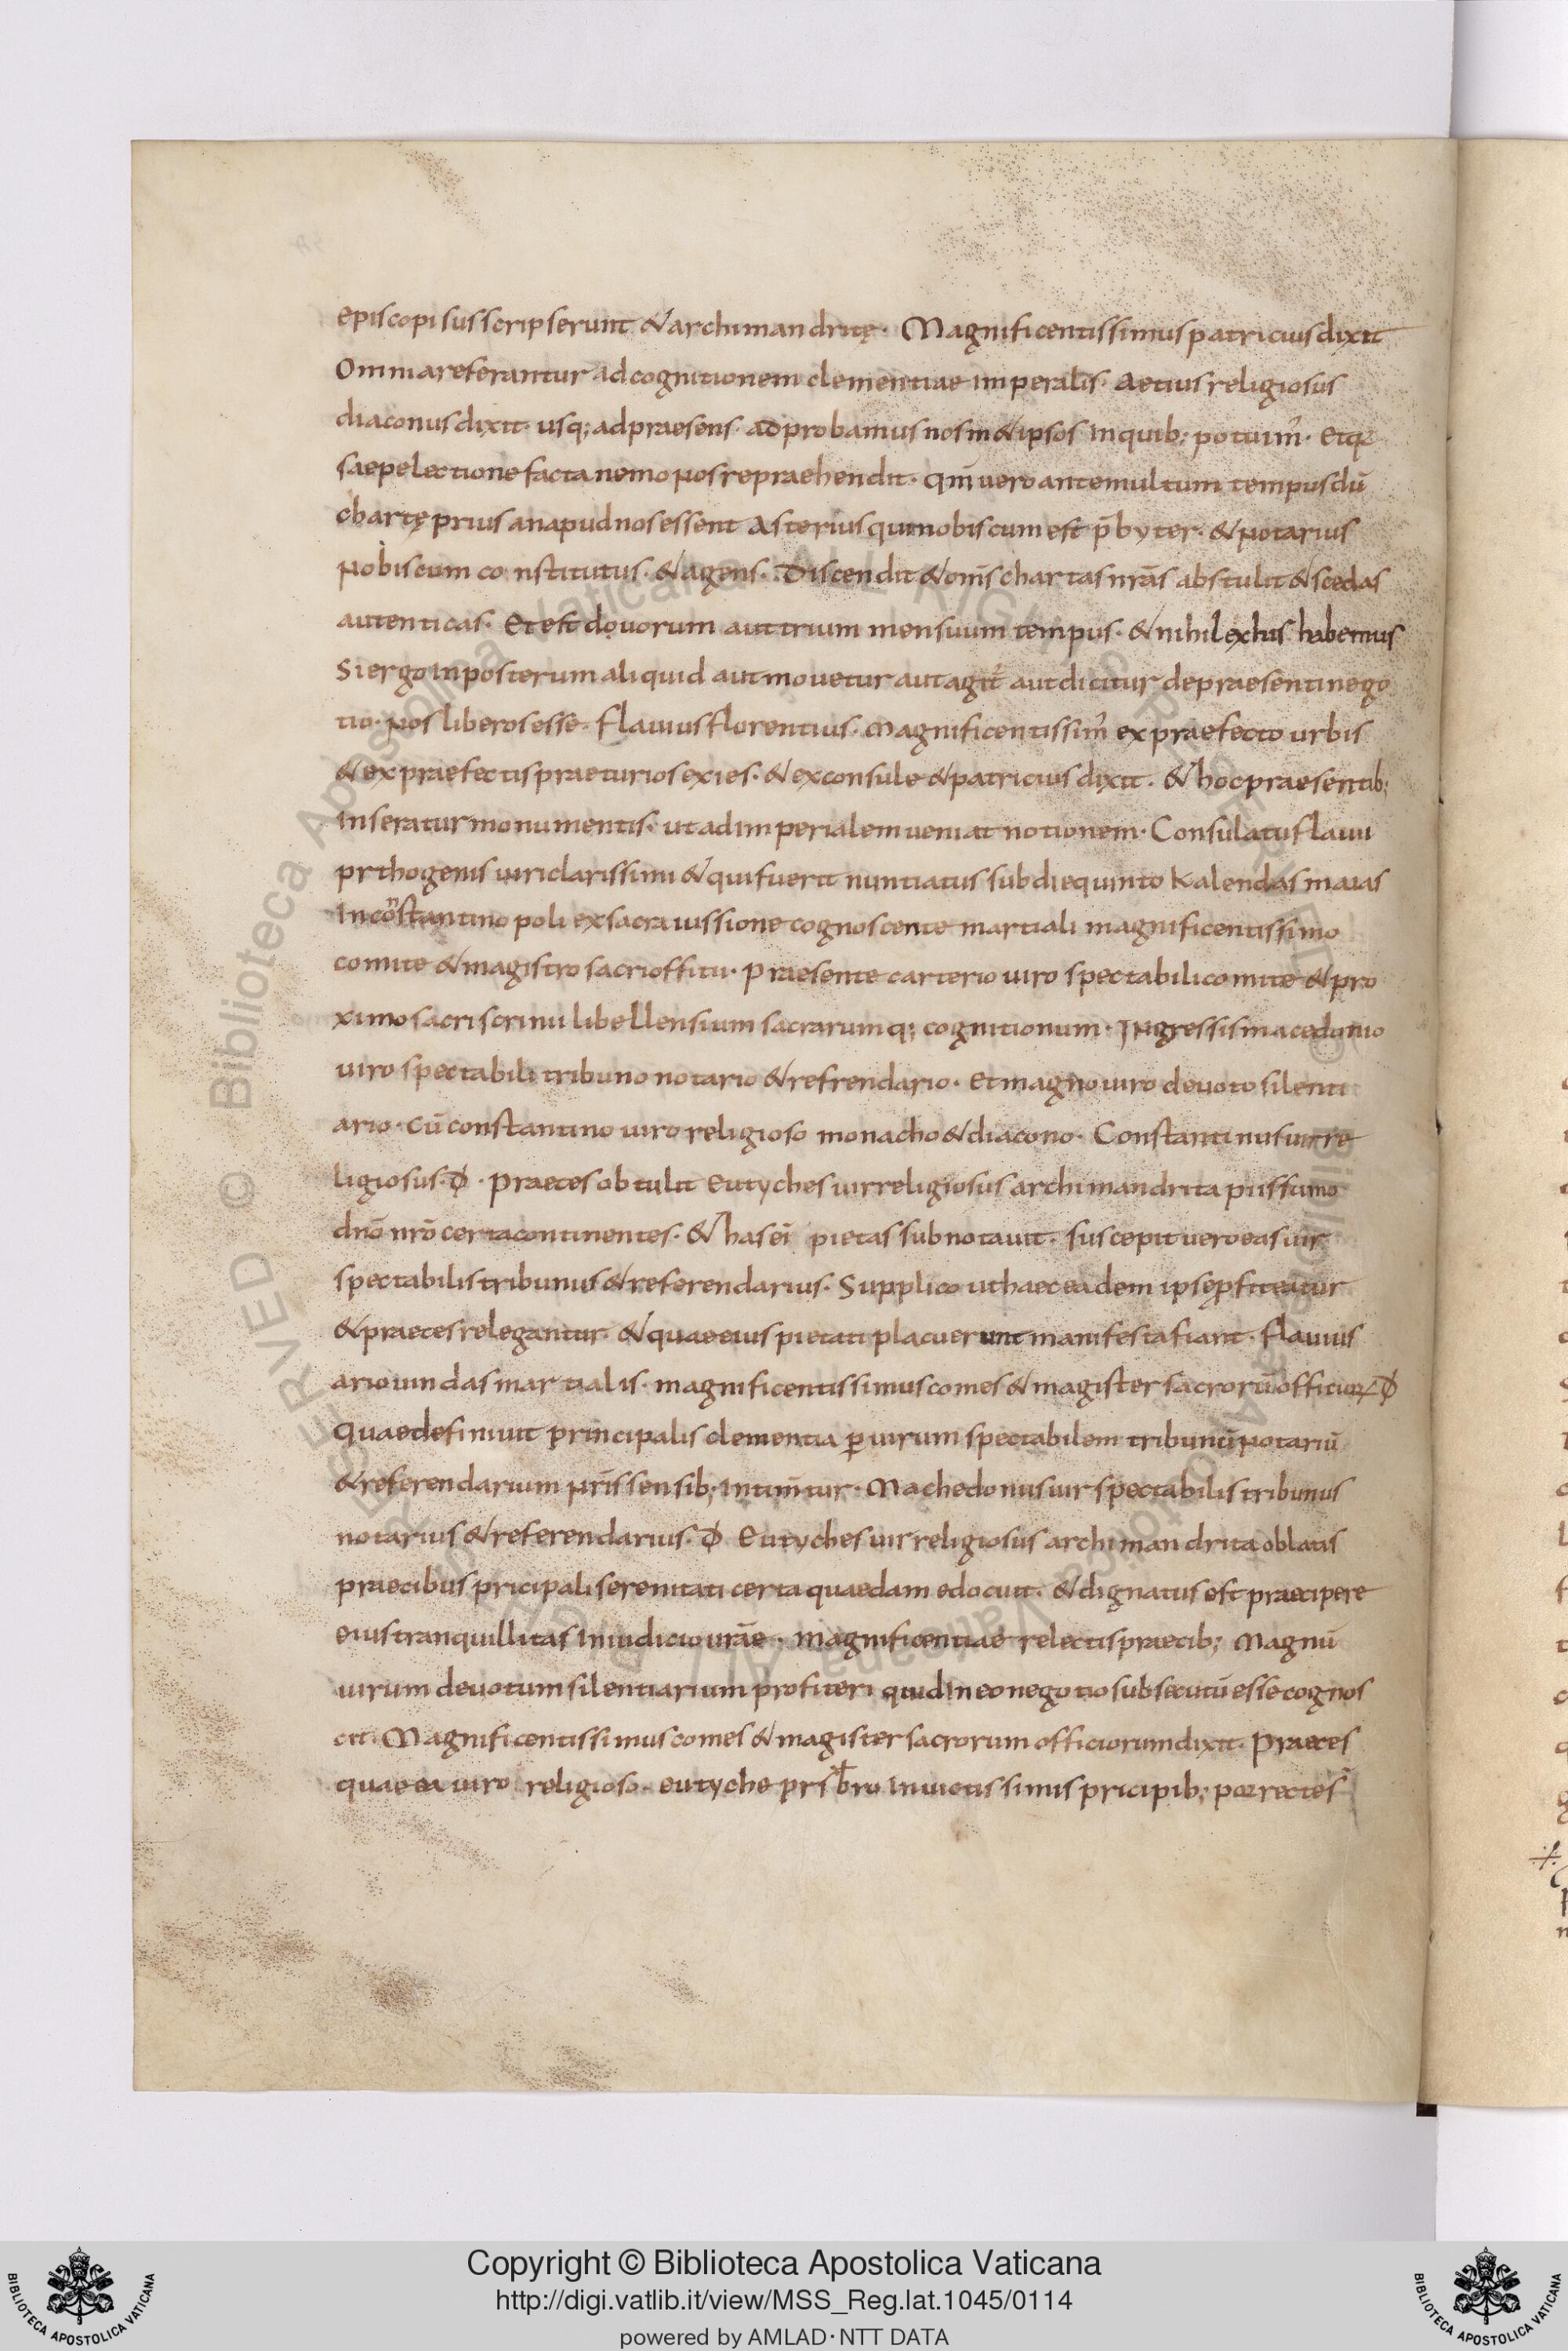 episcopi susscripserunt & archimandritę· Magnificentissimus patricius dixit
Omnia referantur ad cognitionem clementiae imperalis· Aetius religiosus
diaconus dixit· usq; ad praesens adprobamus nosm&ipsos In quib; potuim̄·
saepe lectione facta nemo nos repraehendit· qm̄ uero ante multum tempus dū
chartę prius anapud nos essent Asterius qui nobiscum est p̄byter· & notarius
nobiscum constitutus· & agens· Discendit & om̄s chartas nr̄as abstulit & scedas
autenticas· Et est douorum aut trium mensuum tempus· & nihil ex his habemus
Si ergo In posterum aliquid aut mouetur aut agit̄ aut dicitur de praesenti nego
tio· nos liberos esse· flauius florentius· magnificentissim̄ ex praefecto urbis
& ex praefectis praeturios exies· & ex consule & patricius dixit· & hoc praesentib;
Inseratur monumentis· ut ad imperialem ueniat notionem· Consulatu flauii
prthogenis uiri clarissimi & qui fuerit nuntiatus sub die quinto kalendas maias
In constantinopoli ex sacra iussione cognoscente martiali magnificentissimo
comite & magistro sacri offitii· praesente carterio uiro spectabili comite & pro
ximo sacri scrinii libellensium sacrarumq; cognitionum· Ingressis macedonio
uiro spectabili tribuno notario & refrendario· Et magno uiro deuoto silenti
ario· cū constantino uiro religioso monacho & diacono· Constantinus uir re
ligiosus· đ· praeces obtulit Eutyches uir religiosus archimandrita piissimo
dnō nrō certa continentes· & has ei pietas subnotauit· suscepit uero eas uir
spectabilis tribunus & referendarius· Supplico ut haec eadem ipse ꝓfiteatur
& praeces relegantur· & quae eius pietati placuerunt manifesta fiant· flauius
ariouindas martialis· magnificentissimus comes & magister sacrorū officioꝝ đ
Quae definiuit principalis clementia ꝑ uirum spectabilem tribunū notariū
& referendarium nr̄is sensib; Intim̄tur· Machedonus uir spectabilis tribunus
notarius & referendarius· đ Eutyches uir religiosus archimandrita oblatis
praecibus pricipali serenitati certa quaedam edocuit· & dignatus est praecipere
eius tranquillitas In iudicio urāe· magnificentiae relectis praecib; Magnū
uirum deuotum silentiarium profiteri quid In eo negotio subsecutū esse cognos
cit· Magnificentissimus comes & magister sacrorum officiorum dixit· Praeces
quae a uiro religioso· eutyche prsb̄ro Inuictissimis pricipib; porrectes
Copyright © Biblioteca Apostolica Vaticana
http://digi.vatlib.it/view/MSS_Reg.lat.1045/0114
powered by AMLAD·NTT DATA
BIBLIOTECA APOSTOLICA VATICANA
BIBLIOTECA APOSTOLICA VATICANA